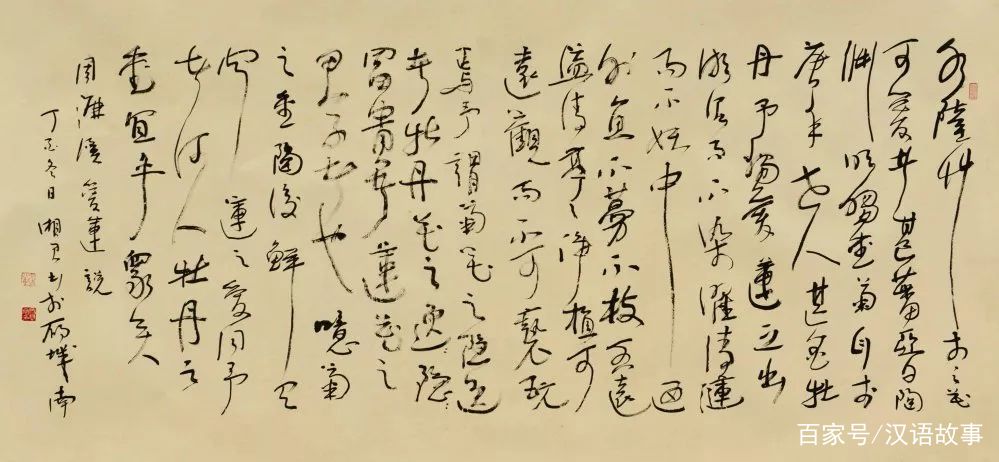 水陸艸木之花
可愛者甚蕃晉陶
渊明獨愛菊自李
唐来世人甚愛牡
丹予獨愛蓮之出
淤泥而不染濯清漣
而不妖中通
外直不蔓不枝香遠
益清亭亭净植可
遠觀而不可褻玩
焉予謂菊花之隱逸
者牡丹花之逸隱
富貴者蓮花之
君子者也噫菊
之愛陶後鮮有
闻蓮之愛同予
者何人牡丹之
愛宜乎眾矣
周濂溪愛蓮説
丁亥冬日湘君书於城南
百家号/汉语故事